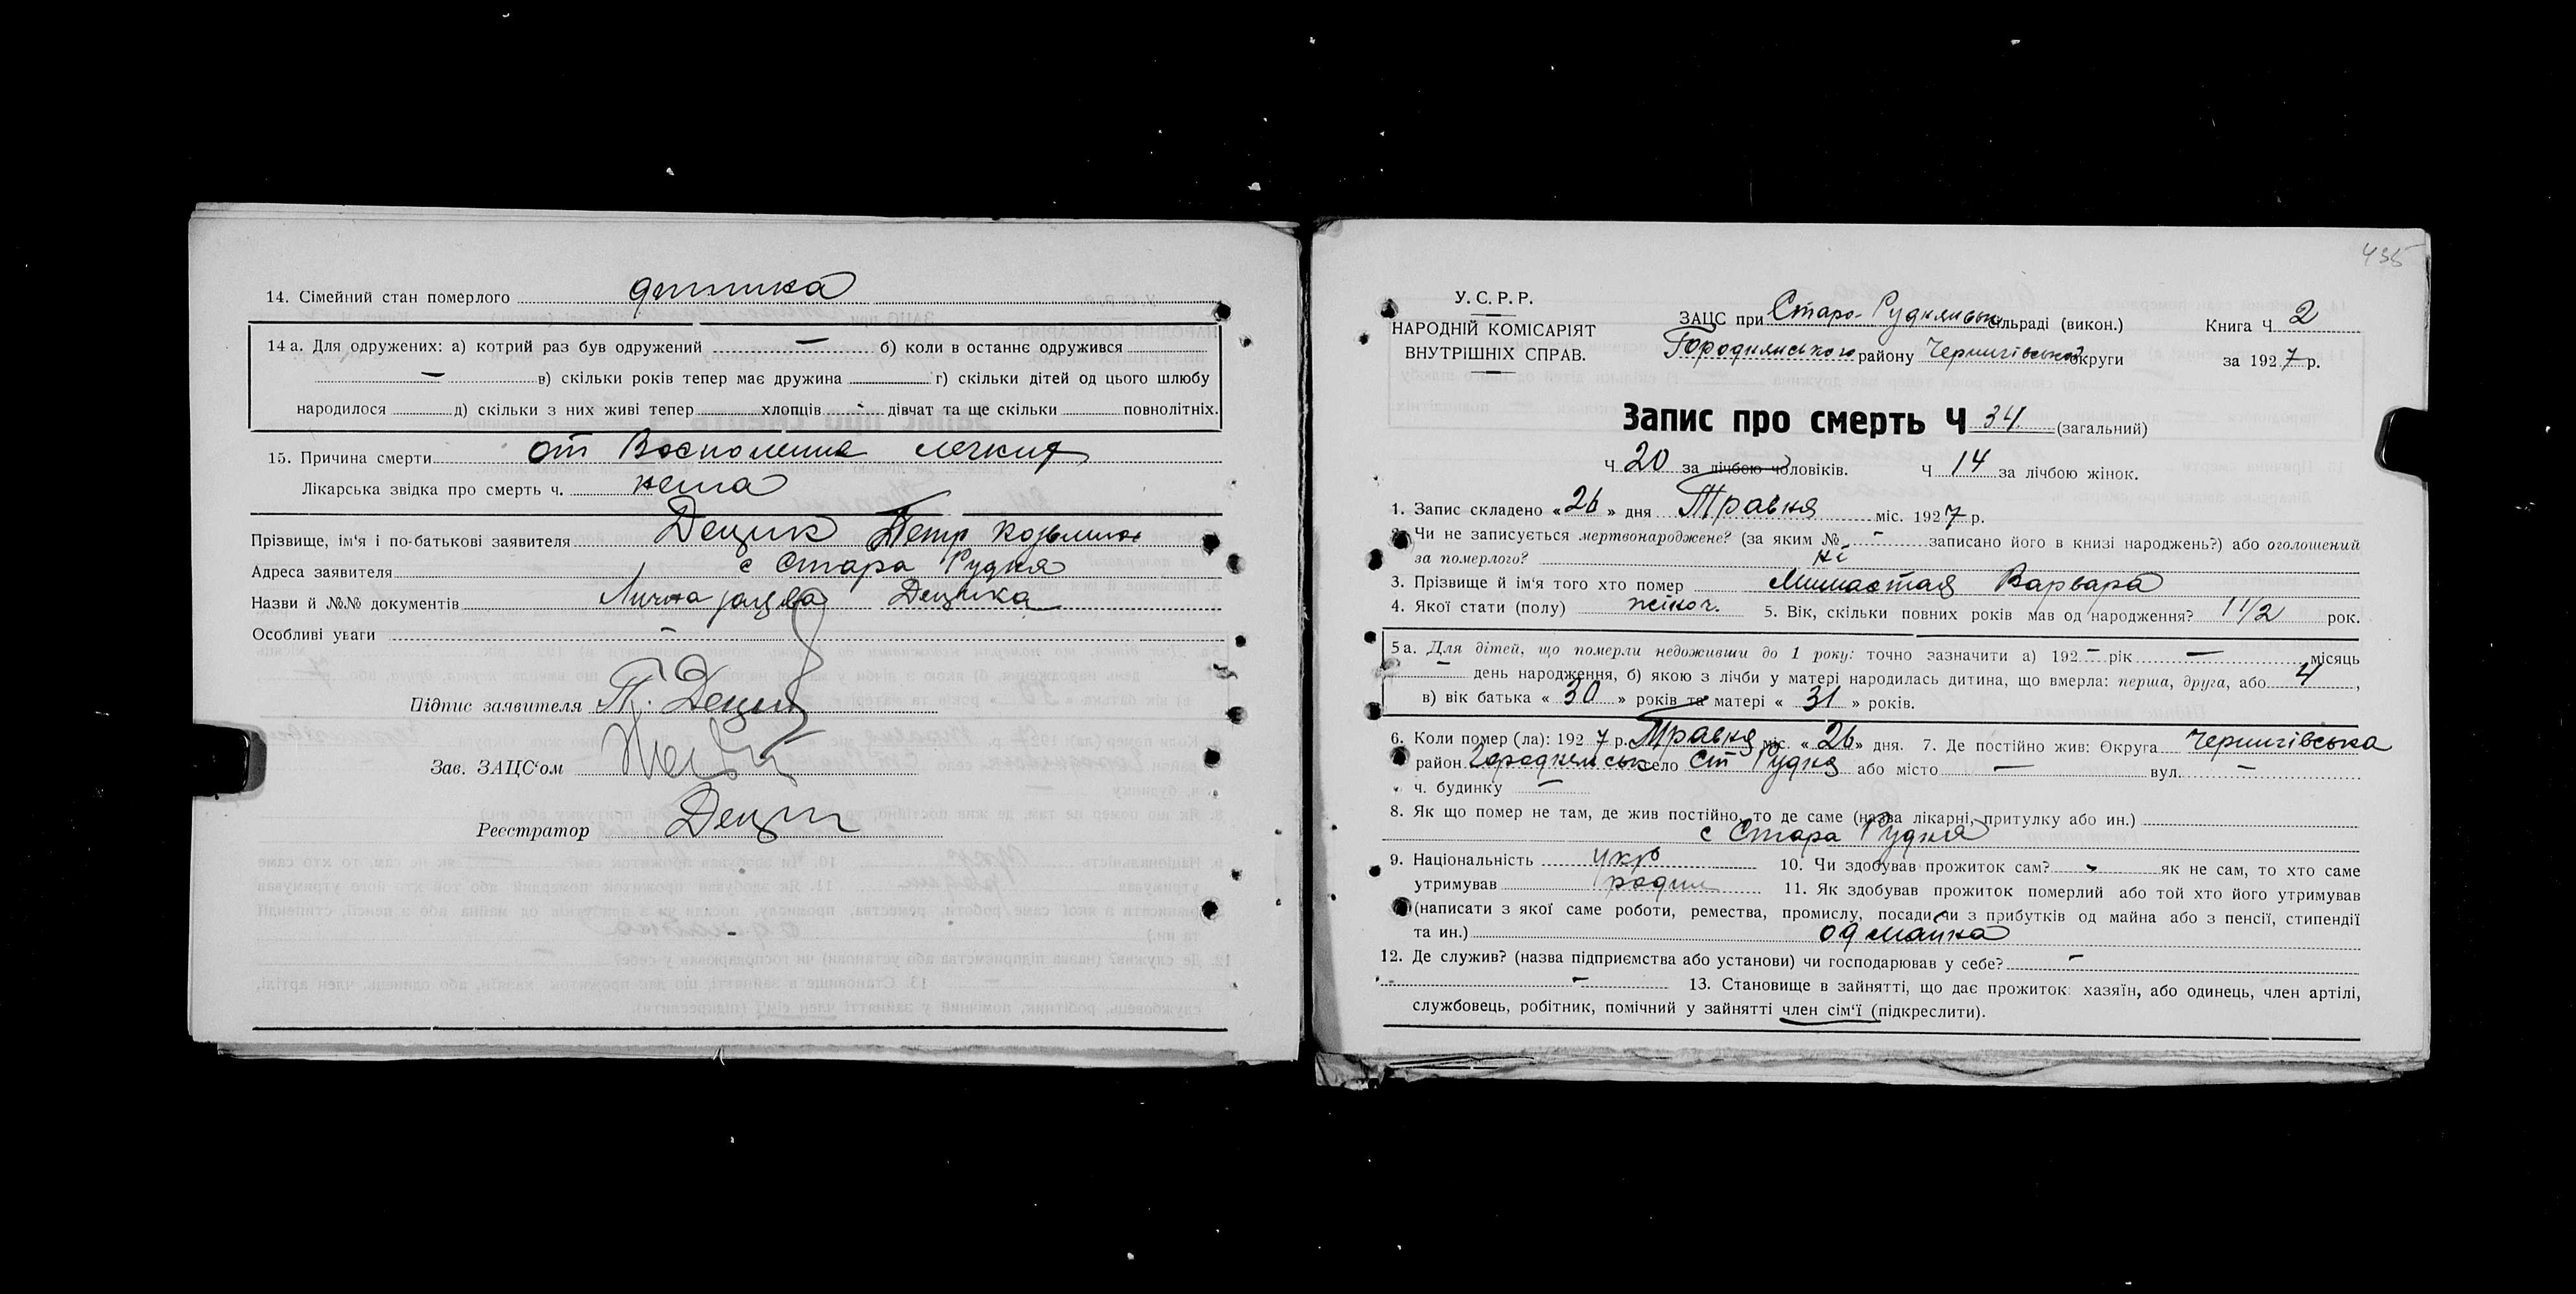 14. Сімейний стан померлого дитина
14 а. Для одружених: а) котрий раз був одружений — б) коли в останнє одружився
— в) скільки років тепер має дружина г) скільки дітей од цього шлюбу
народилося д) скільки з них живі тепер хлопців дівчат та ще скільки повнолітніх.
15. Причина смерти от Восполения легких
Лікарська звідка про смерть ч. нема
Прізвище, ім'я і по-батькові заявителя Децик Петр Козьмич
Адреса заявителя с Стара Рудня
Назви й №№ документів Лична Децика
Особливі уваги —
Підпис заявителя П. Децик
Зав. ЗАЦС'ом
Реєстратор Децик
435
У. С. Р. Р.
НАРОДНІЙ КОМІСАРІЯТ
ВНУТРІШНІХ СПРАВ.
ЗАЦС при Старо-Руднянськ сільраді (викон.)
Городнянського району Чернигівської округи
Книга Ч 2
за 1927 р.
Запис про смерть Ч 34 (загальний)
Ч 20 за лічбою чоловіків. Ч 14 за лічбою жінок.
1. Запис складено «26» дня Травня міс. 1927 р.
2. Чи не записується мертвонароджене? (за яким № - записано його в книзі народжень?) або оголошений
за померлого? ні
3. Прізвище й ім'я того хто помер Варвара
4. Якої стати (полу) жіноч. 5. Вік, скільки повних років мав од народження? 1 1/2 рок.
5 а. Для дітей, що померли недоживши до 1 року: точно зазначити а) 192 — рік — місяць
— день народження, б) якою з лічби у матері народилась дитина, що вмерла: перша, друга, або 4,
в) вік батька «30» років та матері «31» років.
6. Коли помер (ла): 1927 р. Травня міс. «26» дня. 7. Де постійно жив: Округа Чернигівська
район Городнянськ село Ст Рудня або місто — вул. —
ч. будинку —
8. Як що помер не там, де жив постійно, то де саме (назва лікарні, притулку або ин.)
с Стара Рудня
9. Національність укр 10. Чи здобував прожиток сам? - як не сам, то хто саме
утримував родит 11. Як здобував прожиток померлий або той хто його утримував
(написати з якої саме роботи, ремества, промислу, посади чи з прибутків од майна або з пенсії, стипендії
та ин.) од майна
12. Де служив? (назва підприємства або установи) чи господарював у себе? —
— 13. Становище в зайнятті, що дає прожиток: хазяїн, або одинець, член артілі,
службовець, робітник, помічний у зайнятті член сім'ї (підкреслити).